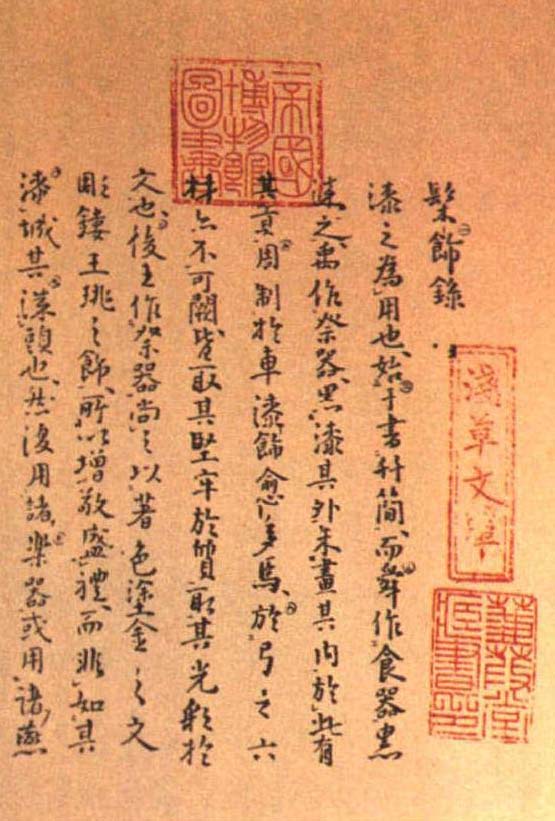 帝國
博物館
圖書
髹飾錄
漆之為用也始于書竹簡而舜作食器黑
漆之禹作祭器黑漆其外朱畫其内於此有
其貢周制於車漆飾愈多焉於弓之六
材亦不可闕皆取其堅牢於質取其光彩於
文也後王作祭器尚之以著色塗金之文
彫鏤玉珧之飾所以增敬盛禮而非如其
漆城其漆頭也然復用諸樂器或用諸燕
淺草文庫
蒹葭堂
藏書印